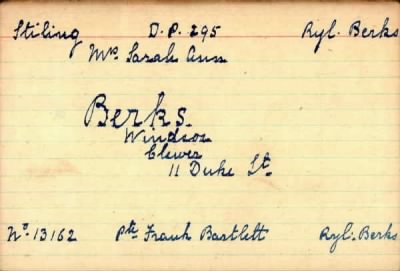 Stiling D.P. 295 Ryl. Berks
Mrs Sarah Ann
Berks.
Windsor
Clewer
11 Duke St.
No. 13162 Pte Frank Bartlett Ryl. Berks